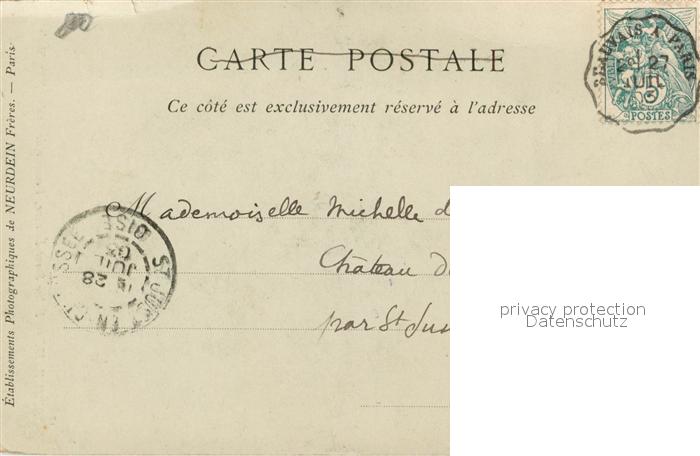 CARTE POSTALE
Ce côté est exclusivement réservé à l'adresse
BEAUVAIS A PARIS
27
JUIL
03
POSTES
Mademoiselle Michelle d
Château d
par St Jus
OISE
28
JUIL
03
privacy protection
Datenschutz
Établissements Photographiques de NEURDEIN Frères. — Paris